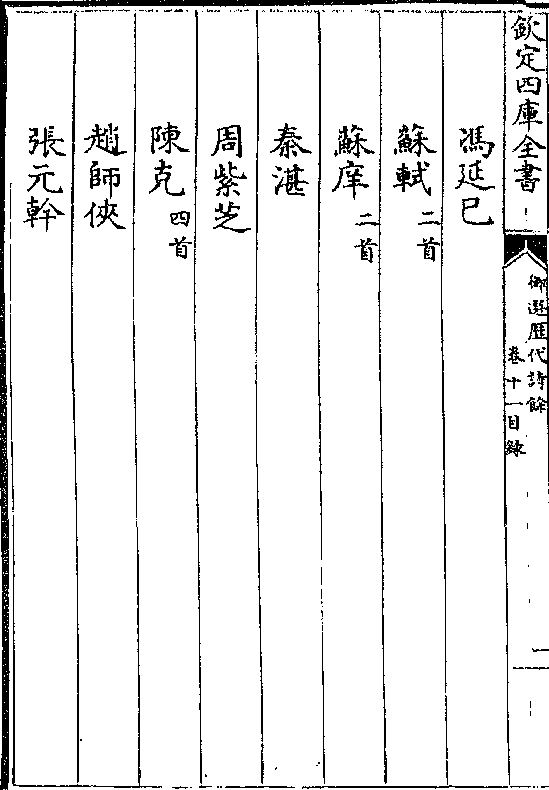 欽定四庫全書
御選歷代詩餘
卷十一目錄
一
馮延巳
蘇軾 二首
蘇庠 二首
秦湛
周紫芝
陳克 四首
趙師俠
張元幹